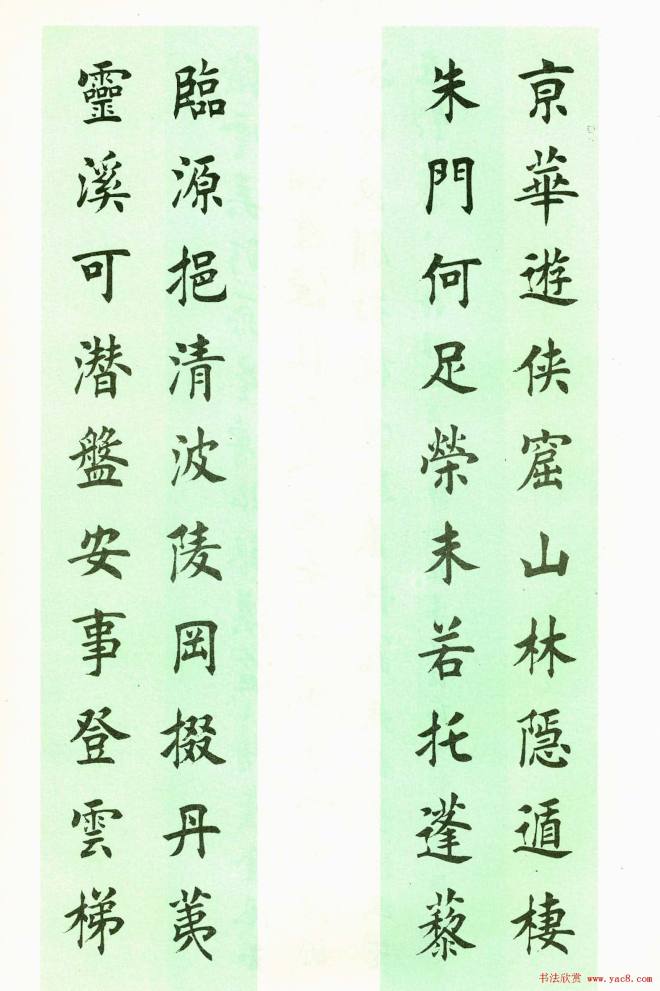 京華遊侠窟山林隱遁棲
朱門何足榮未若托蓬藜
臨源挹清波陵岡掇丹荑
靈溪可潜盤安事登雲梯
书法欣赏 www.yac8.com